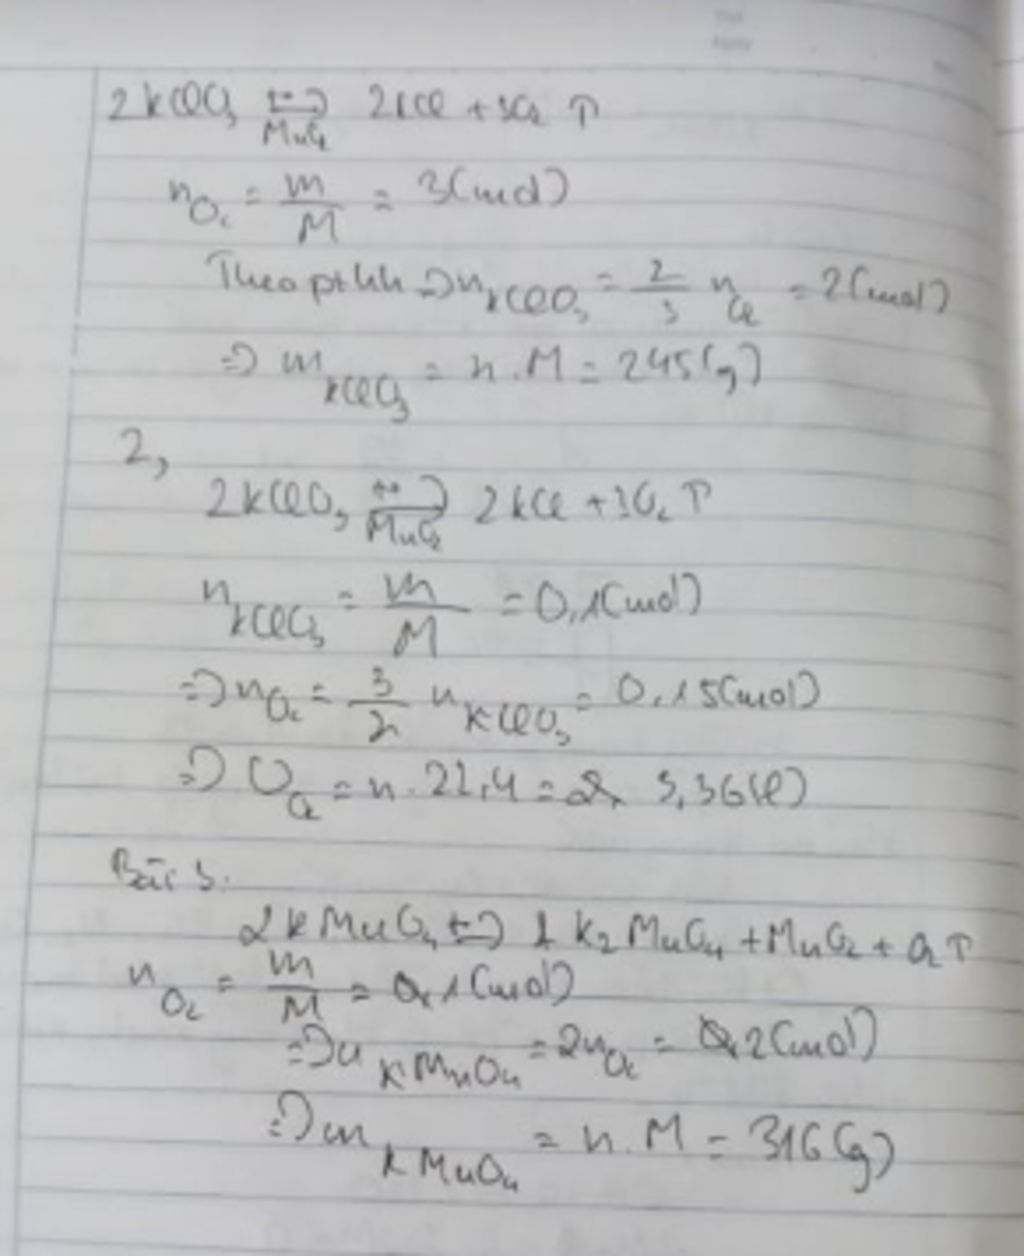 2KClO₃ ⇄ 2KCl + 3O₂ ↑
MnO₂
n O₂ = m/M = 3(mol)
Theo ptHh ⇒ n KClO₃ = 2/3 n O₂ = 2(mol)
⇒ m KClO₃ = n.M = 245(g)
2,
2KClO₃ → 2KCl + 3O₂ ↑
MnO₂
n KClO₃ = m/M = 0,1(mol)
⇒ n O₂ = 3/2 n KClO₃ = 0,15(mol)
⇒ V O₂ = n.22,4 = 3,36(l)
Bài 3:
2KMnO₄ → 1 K₂MnO₄ + MnO₂ + O₂ ↑
n O₂ = m/M = 0,1(mol)
⇒ n KMnO₄ = 2n O₂ = 0,2(mol)
⇒ m KMnO₄ = n.M = 316(g)